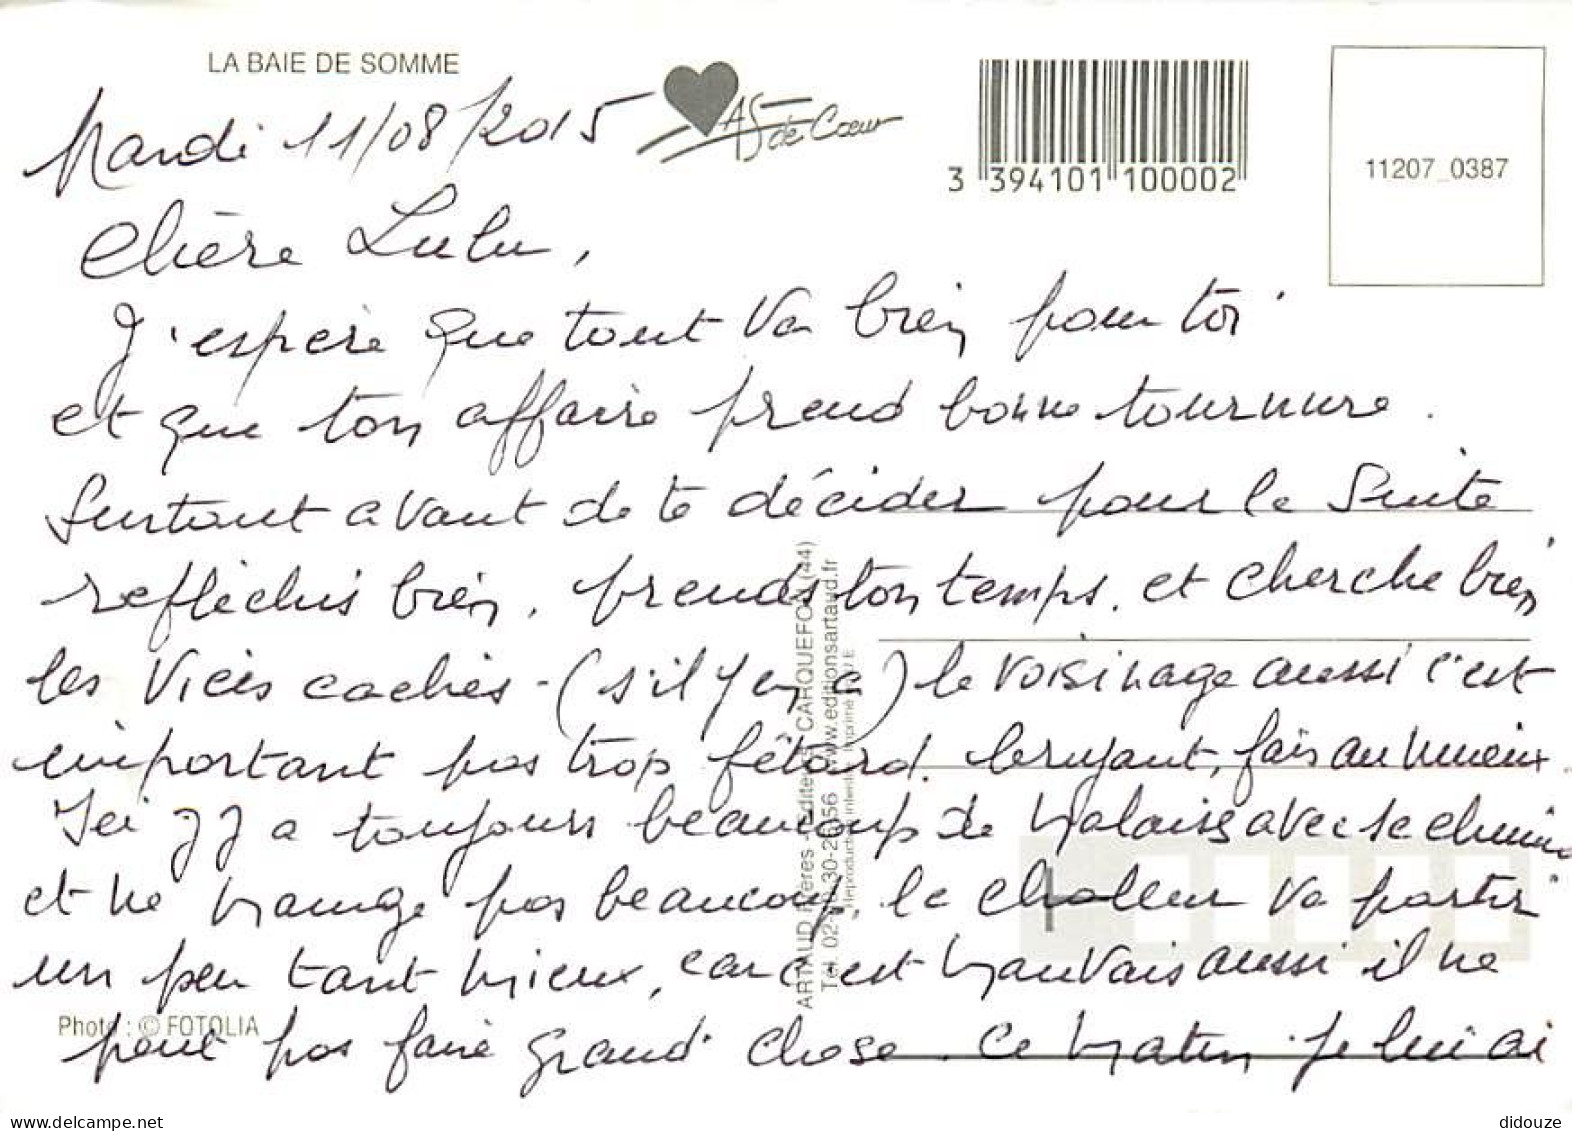 LA BAIE DE SOMME
As de Cœur
3 394101 100002
11207_0387
Mardi 11/08/2015
Chère Lulu,
J'espère que tout va bien pour toi
et que ton affaire prend bonne tournure.
Surtout avant de te décider pour la suite
refléchis bien, prends ton temps. et cherche bien
les vices cachés - (s'il y en a) le voisinage aussi c'est
important pas trop fêtard. bruyant, fais au mieux.
Ici il y a toujours beaucoup de malaises avec
et ne mange pas beaucoup, la chaleur va partir
un peu tant mieux, car c'est mauvais aussi il ne
peut pas faire grand chose. Ce matin je lui ai
Photo : © FOTOLIA
ARTAUD Frères - Éditeurs CARQUEFOU (44)
Tél. 02- 30-20 56 www.editionsartaud.fr
Reproduction interdite Imprimé U E
didouze